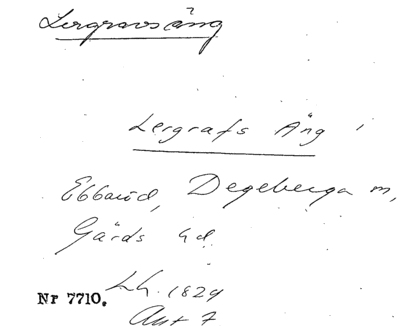 Lergravsäng
Lergrafs Äng i
Ebbaröd, Degeberga m,
Gärds hd
Nr 7710. Lh. 1829
Akt 7